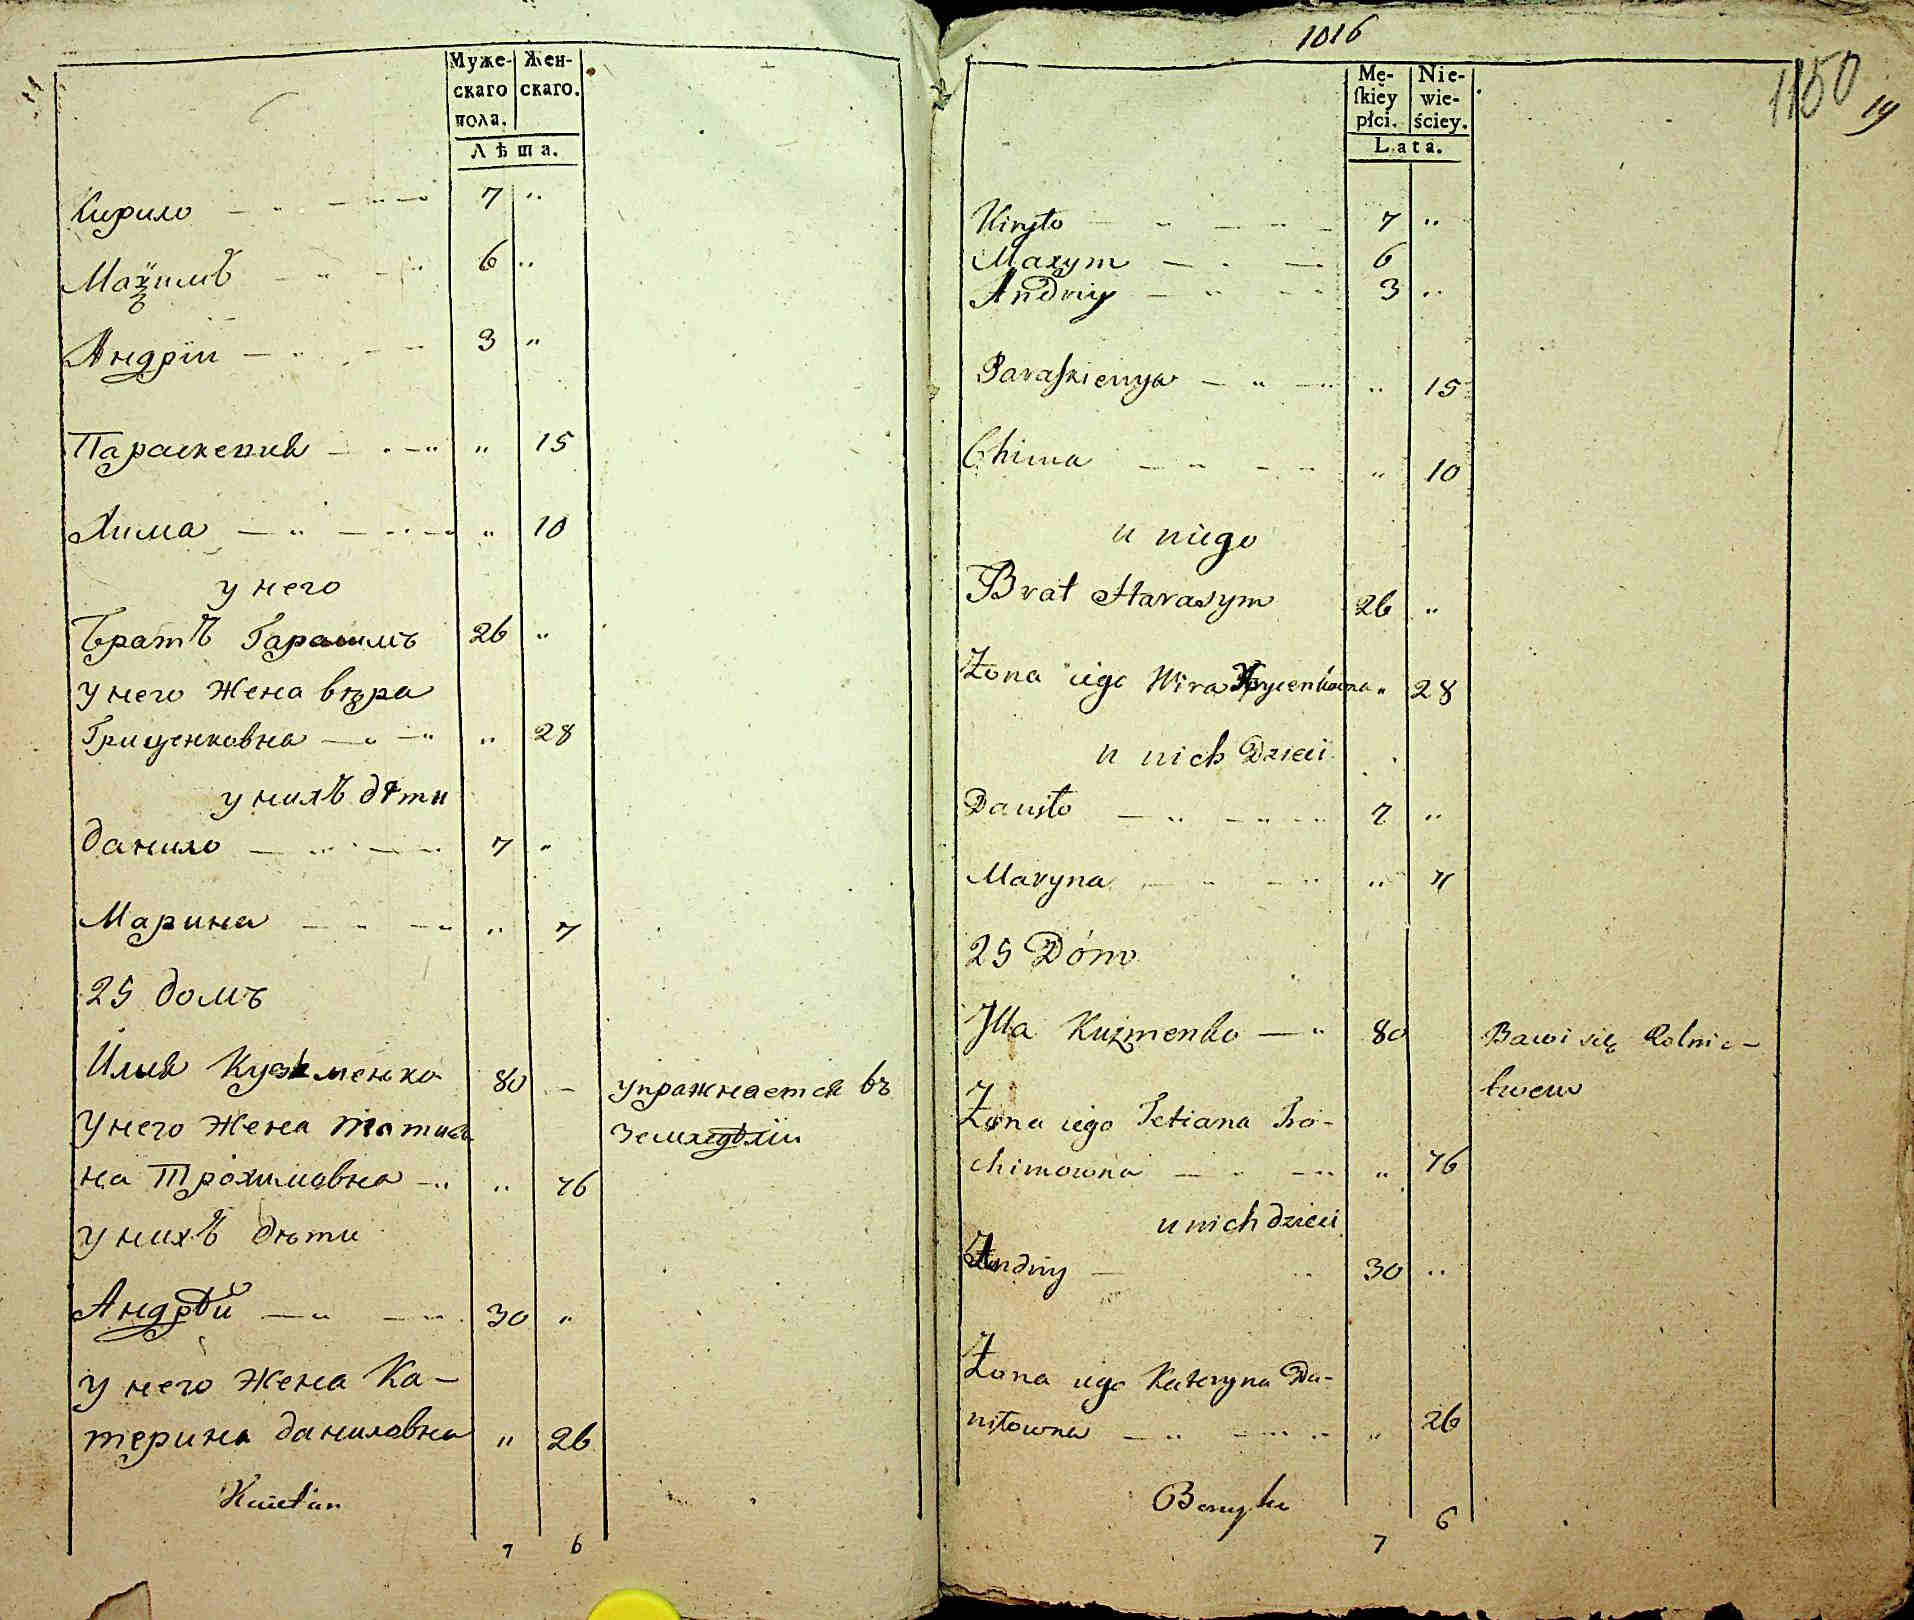 Муже-
скаго
пола.
Жен-
скаго.
Лѣта.
Кирило — „ — „ — 7 „
Маѯимъ — „ — „ 6 „
Андрій — „ — — 3 „
Параскевия — „ — „ „ 15
Хима — „ — „ — „ 10
у него
Братъ Гарасимъ 26 „
у него жена вѣра
Грищенковна — „ — „ „ 28
у нихъ дѣти
данило — „ — — 7 „
Марина — „ — „ „ 7
25 домъ
Илия Кузьменко 80 —
упражнается въ
земледѣлїи
У него жена татия
на Трохимовна — „ „ 76
у нихъ дѣти
Андрѣй — „ — „ 30 „
у него жена Ка-
терина даниловна „ 26
7 6
1016
1150
19
Mę-
ſkiey
płci.
Nie-
wie-
ściey.
Lata.
Kiryło — „ — „ — 7 „
Maxym — „ — „ 6
Andriy — „ — „ 3 „
Paraſkiewya — „ — „ „ 15
Chima — „ — „ „ 10
u niego
Brat Harasym 26 „
Żona iego Wira Hrycenkowna „ 28
u nich Dzieci
Daniło — „ — „ 7 „
Maryna — „ — „ „ 7
25 Dóm
Jlla Kuzmenko — „ 80
Bawi się Rolnic-
twem
Żona iego Tetiana Tro-
chimowna — „ — „ „ 76
u nich dzieci
Andriy — „ 30 „
Żona iego Kateryna Da-
niłowna — „ — „ „ 26
7 6